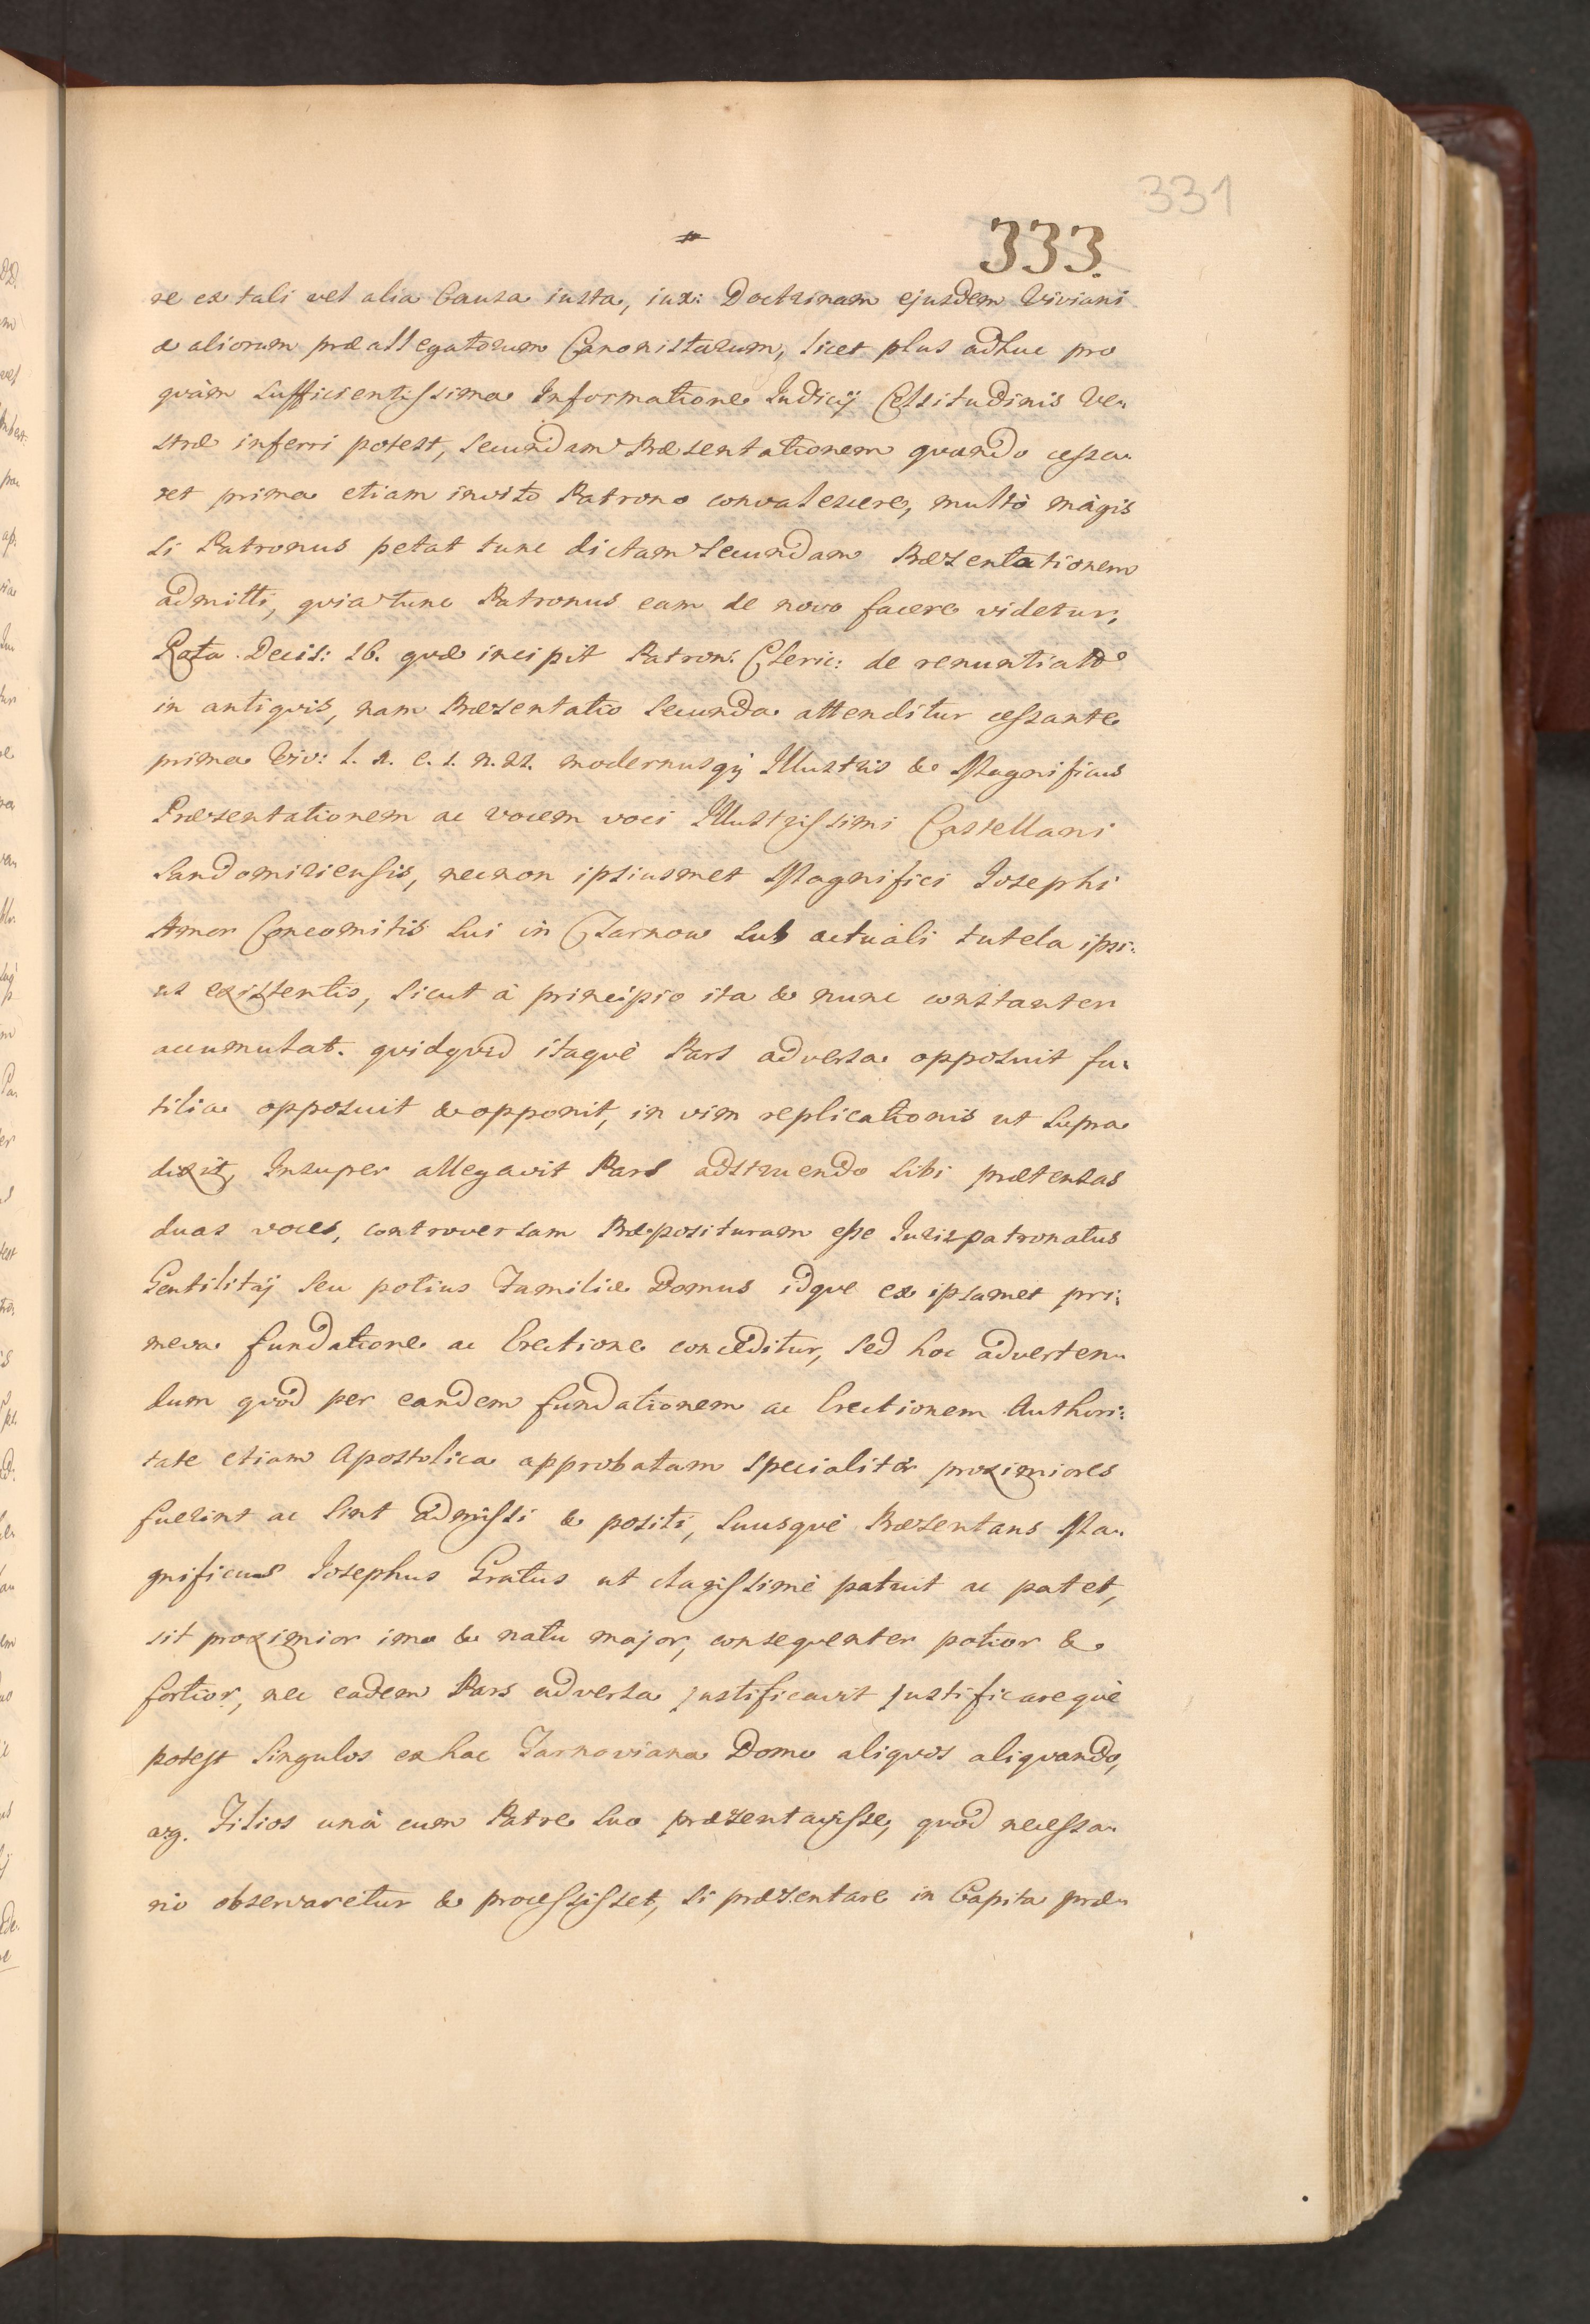 331
333.
re ex tali vel alia Causa iusta, iux: Doctrinam ejusdem Viviani
& aliorum præallegatorum Canonistarum, licet plus adhuc pro
quàm sufficientissima Informatione Judicij Celsitudinis Ve„
stræ inferri potest, secundam Præsentationem quando cessa„
ret prima etiam invito Patrono convalescere, multò màgis
si Patronus petat tunc dictam secundam Præsentationem
admitti, quia tunc Patronus eam de novo facere videtur,
Rota Decis: 16. quæ incipit Patron: Cleric: de renuntiat
in antiquis, nam Præsentatio secunda attenditur cessante
prima Viv: modernusq; Illustris & Magnificus
Præsentationem ac vocem voci Illustrissimi Castellani
Sandomiriensis, necnon ipsiusmet Magnifici Josephi
Amor Concomitis sui in Tarnow sub actuali tutela ipsi:
us existentis, sicut à principio ita & nunc constanter
accumulat. quidquid itaquè Pars adversa opposuit fu„
tilia opposuit & opponit, in vim replicationis ut supra
dixit, Insuper allegavit Pars adstruendo sibi prætensas
duas voces, controversam Præposituram esse Jurispatronatus
Gentilitij seu potius Familiæ Domus idque ex ipsamet pri:
meva fundatione ac Erectione conceditur, sed hoc adverten„
dum quòd per eandem fundationem ac Erectionem Authori:
tate etiam Apostolica approbatam specialitèr proximiores
fuerint ac sint admissi & positi, suusquè Præsentans Ma„
gnificus Josephus Gratus ut clarissimè patuit ac patet,
sit proximior imo & natu major, consequenter potior &
fortior, nec eadem Pars adversa justificavit justificarequè
potest singulos ex hac Tarnoviana Domo aliquos aliquando,
arg. Filios unà cum Patre suo præsentavisse, quòd necessa„
rio observaretur & processisset, si præsentare in Capita præ„